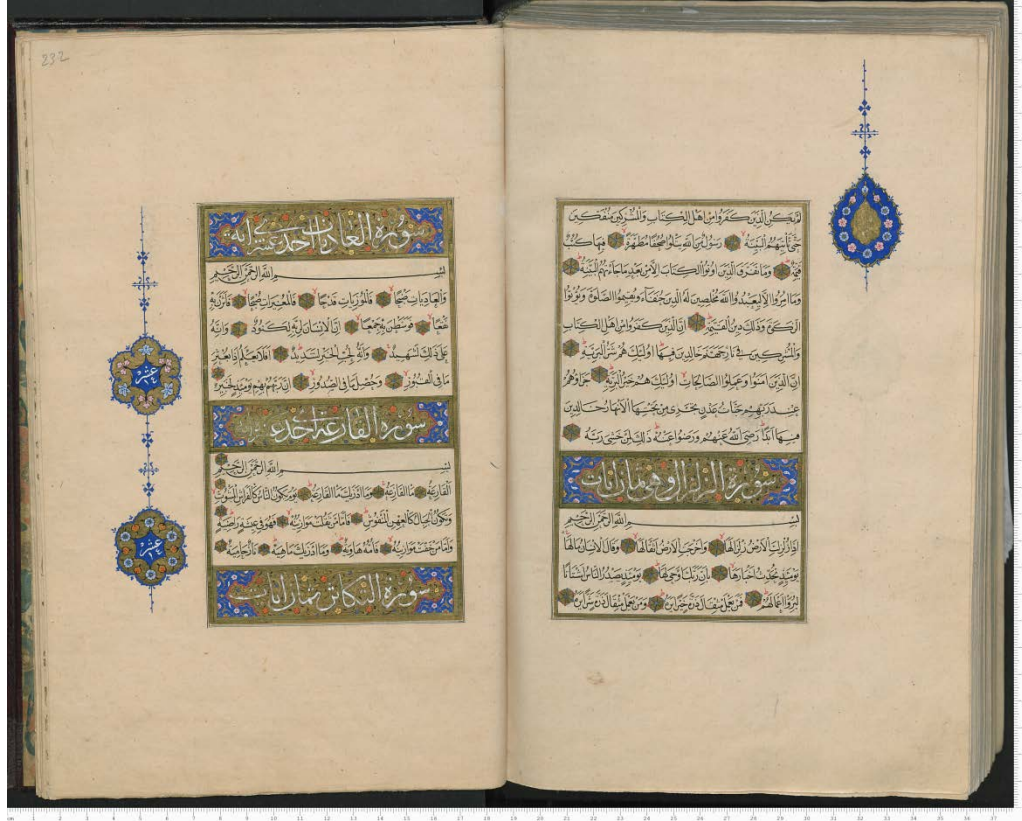 لم يكن الذين كفروا من اهل الكتاب والمشركين منفكين
حتى تأتيهم البينة رسول من الله يتلوا صحفا مطهرة فيها كتب
قيمة وما تفرق الذين اوتوا الكتاب الا من بعد ما جاءتهم البينة
وما امروا الا ليعبدوا الله مخلصين له الدين حنفاء ويقيموا الصلوة ويؤتوا
الزكوة وذلك دين القيمة ان الذين كفروا من اهل الكتاب
والمشركين في نار جهنم خالدين فيها اولئك هم شر البرية
ان الذين امنوا وعملوا الصالحات اولئك هم خير البرية جزاؤهم
عند ربهم جنات عدن تجري من تحتها الانهار خالدين
فيها ابدا رضي الله عنهم ورضوا عنه ذلك لمن خشي ربه
سورة الزلزال وهي ثمان ايات
بسم الله الرحمن الرحيم
اذا زلزلت الارض زلزالها واخرجت الارض اثقالها وقال الانسان ما لها
يومئذ تحدث اخبارها بان ربك اوحى لها يومئذ يصدر الناس اشتاتا
ليروا اعمالهم فمن يعمل مثقال ذرة خيرا يره ومن يعمل مثقال ذرة شرا يره
232
سورة العاديات احدى عشرة اية
بسم الله الرحمن الرحيم
والعاديات ضبحا فالموريات قدحا فالمغيرات صبحا فاثرن به
نقعا فوسطن به جمعا ان الانسان لربه لكنود وانه
على ذلك لشهيد وانه لحب الخير لشديد افلا يعلم اذا بعثر
ما في القبور وحصل ما في الصدور ان ربهم بهم يومئذ لخبير
سورة القارعة احدى
بسم الله الرحمن الرحيم
القارعة ما القارعة وما ادريك ما القارعة يوم يكون الناس كالفراش المبثوث
وتكون الجبال كالعهن المنفوش فاما من ثقلت موازينه فهو في عيشة راضية
واما من خفت موازينه فامه هاوية وما ادريك ماهيه نار حامية
سورة التكاثر ثمان ايات
عشر
عشر